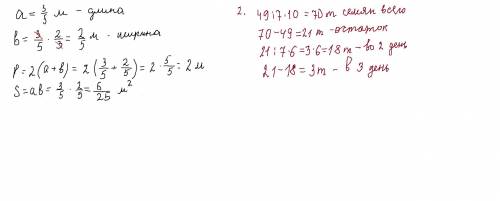 a = 3/5 м - длина
b = 3/5 · 2/3 = 2/5 м - ширина
P = 2(a+b) = 2(3/5 + 2/5) = 2 · 5/5 = 2 м
S = ab = 3/5 · 2/5 = 6/25 м²
2. 49:7·10 = 70 т семян всего
70-49=21 т - остаток
21:7·6=3·6=18 т - во 2 день
21-18=3 т - в 3 день